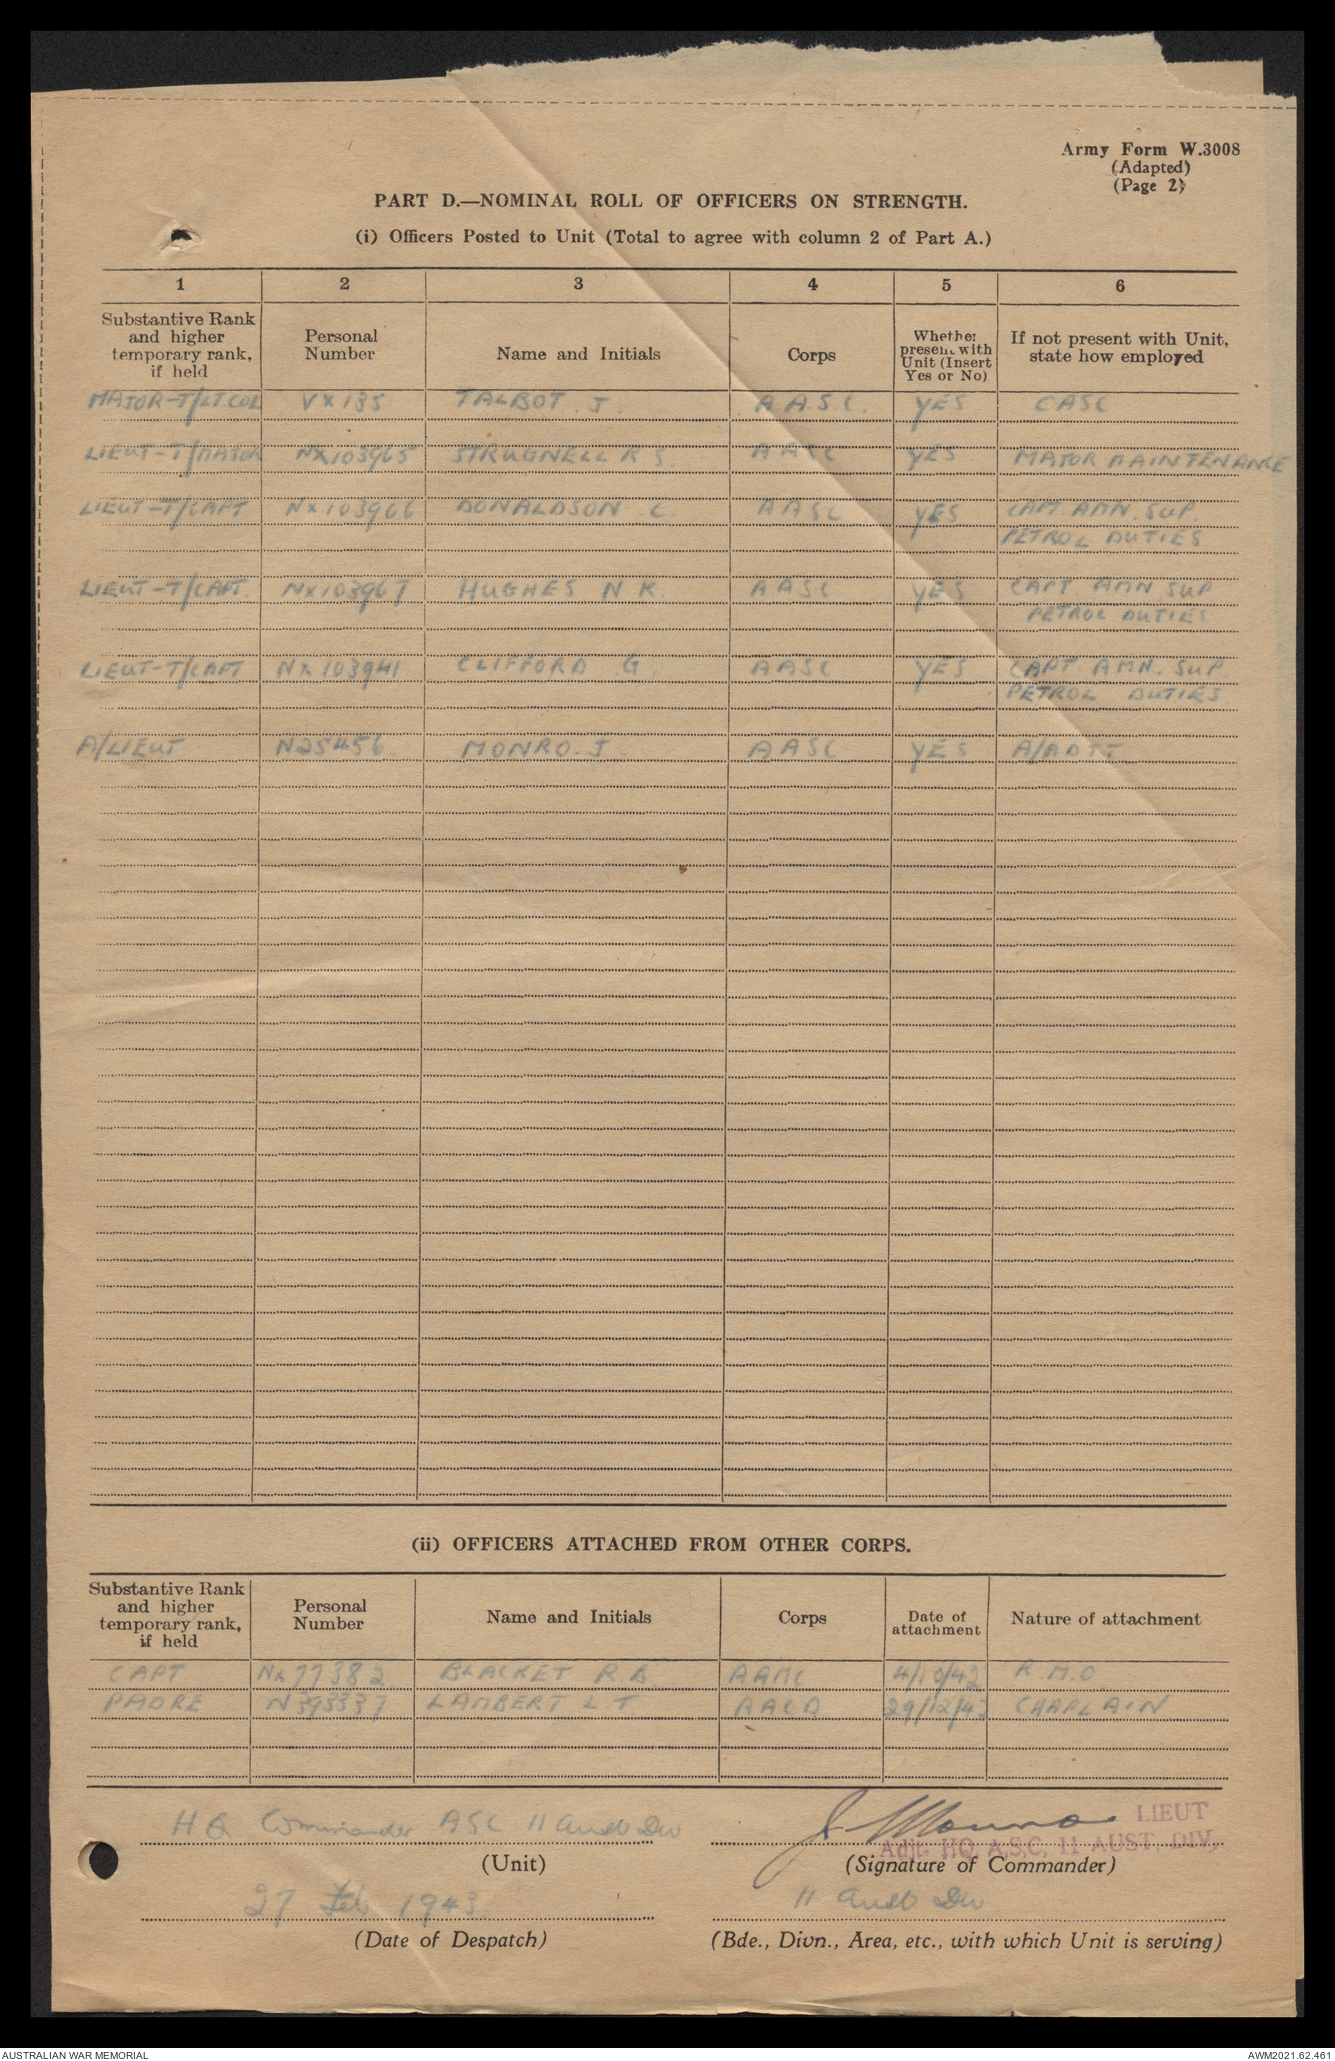 Army Form W.3008
(Adapted)
(Page 2)
PART D.—NOMINAL ROLL OF OFFICERS ON STRENGTH.
(i) Officers Posted to Unit (Total to agree with column 2 of Part A.)
1 2 3 4 5 6
Substantive Rank and higher temporary rank, if held | Personal Number | Name and Initials | Corps | Whether present with Unit (Insert Yes or No) | If not present with Unit, state how employed
MAJOR-T/LT COL VX135 TALBOT J. A.A.S.C. YES CASC
LIEUT-T/MAJOR NX103965 STRUGNELL R S AASC YES MAJOR MAINTENANCE
LIEUT-T/CAPT NX103966 DONALDSON C. AASC YES CAPT. AMN. SUP.
PETROL DUTIES
LIEUT-T/CAPT NX103967 HUGHES N K. AASC YES CAPT AMN SUP
PETROL DUTIES
LIEUT-T/CAPT NX103941 CLIFFORD G AASC YES CAPT AMN. SUP
PETROL DUTIES
A/LIEUT N25456 MONRO J AASC YES A/ADJT
(ii) OFFICERS ATTACHED FROM OTHER CORPS.
Substantive Rank and higher temporary rank, if held | Personal Number | Name and Initials | Corps | Date of attachment | Nature of attachment
CAPT NX77382 BLACKET R B. AAMC 4/10/42 R.M.O
PADRE N393337 LAMBERT L T. AACD 29/12/42 CHAPLAIN
H.Q. Commander ASC 11 Aust Div
J Monro LIEUT
Adjt- HQ, A.S.C, 11 AUST, DIV,
(Unit) (Signature of Commander)
27 Feb 1943 11 Aust Div
(Date of Despatch) (Bde., Divn., Area, etc., with which Unit is serving)
AUSTRALIAN WAR MEMORIAL AWM2021.62.461